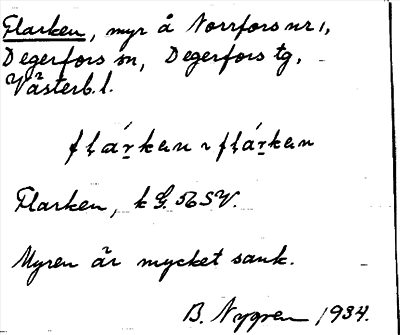 Flarken, myr å Norrfors nr 1,
Degerfors sn, Degerfors tg,
Västerb. l.
Flarken, k G. 56 SV.
Myren är mycket sank.
B. Nygren 1934.